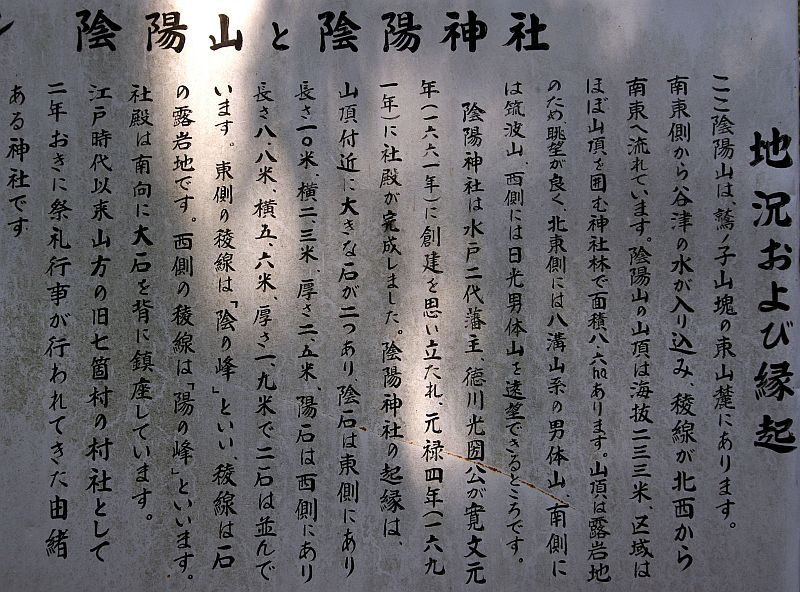 陰陽山と陰陽神社
地況および縁起
ここ陰陽山は、鷲ノ子山塊の東山麓にあります。
南東側から谷津の水が入り込み、稜線が北西から
南東へ流れています。陰陽山の山頂は海抜二三三米、区域は
ほぼ山頂を囲む神社林で面積八・六㏊あります。山頂は露岩地
のため眺望が良く、北東側には八溝山系の男体山、南側に
は筑波山、西側には日光男体山を遠望できるところです。
陰陽神社は水戸二代藩主、徳川光圀公が寛文元
年(一六六一年)に創建を思い立たれ、元禄四年(一六九
一年)に社殿が完成しました。陰陽神社の起縁は、
山頂付近に大きな石が二つあり陰石は東側にあり
長さ一〇米、横二・三米、厚さ二、五米、陽石は西側にあり
長さ八、八米、横五、六米、厚さ一、九米で二石は並んで
います。東側の稜線は「陰の峰」といい、稜線は石
の露岩地です。西側の稜線は「陽の峰」といいます。
社殿は南向に大石を背に鎮座しています。
江戸時代以来山方の旧七箇村の村社として
二年おきに祭礼行事が行われてきた由緒
ある神社です